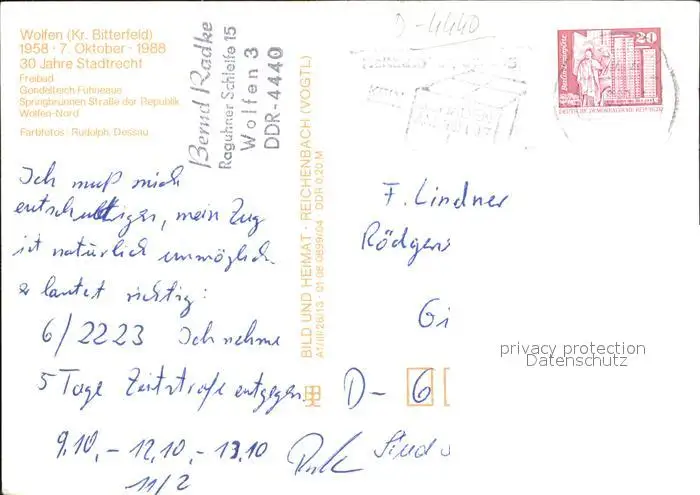 Wolfen (Kr. Bitterfeld)
1958 · 7. Oktober · 1988
30 Jahre Stadtrecht
Freibad
Gondelteich Fuhneaue
Springbrunnen Straße der Republik
Wolfen-Nord
Farbfotos: Rudolph, Dessau
Bernd Radke
Raguhner Schleife 15
Wolfen 3
DDR-4440
D-4440
Berlin-Leninplatz
20
DEUTSCHE DEMOKRATISCHE REPUBLIK
Ich muß mich
entschuldigen, mein Zug
ist natürlich unmöglich.
er lautet richtig:
6/2223 Ich nehme
5 Tage Zeitstrafe entgegen.
9.10. - 12.10. - 13.10
11/2
BILD UND HEIMAT · REICHENBACH (VOGTL)
A1/III/26/13 · 01 08 0899/04 DDR 0,20 M
F. Lindner
Rödgens
Gi
D- 6
privacy protection
Datenschutz